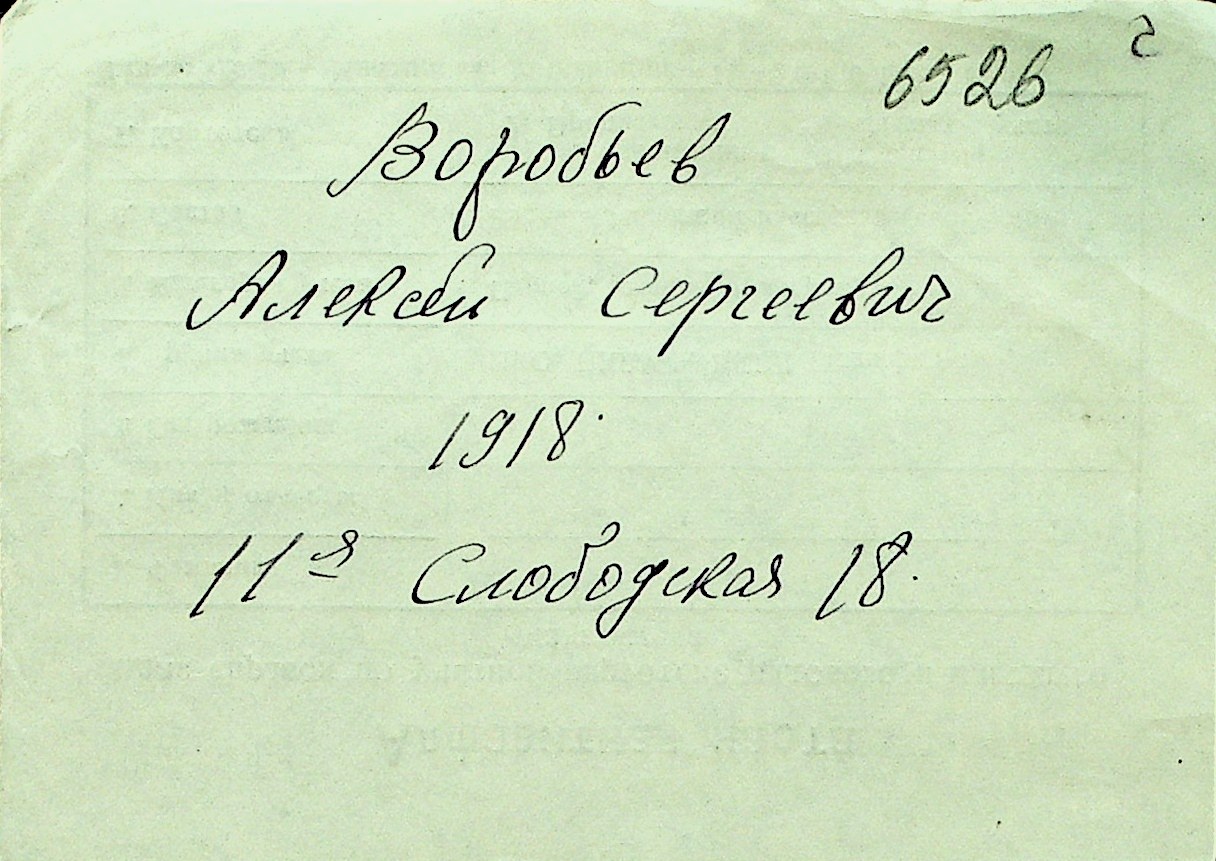 6526
Воробьев
Алексей Сергеевич
1918.
11я Слободская 18.